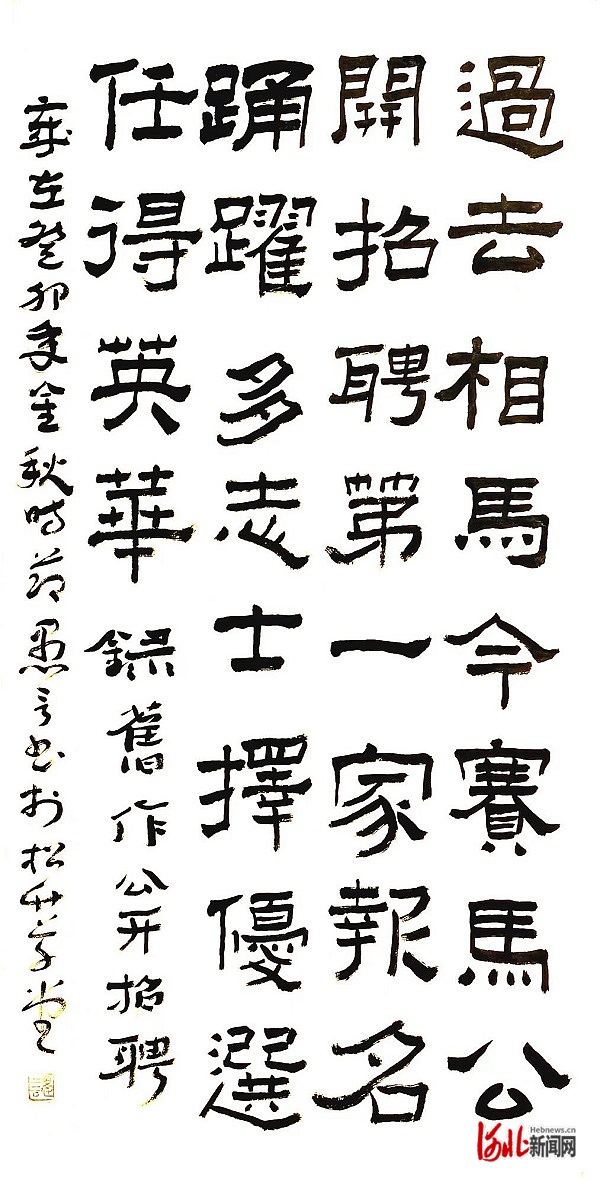 過去相馬今賽馬公
開招聘第一家報名
踴躍多志士擇優選
任得英華 錄舊作公开招聘
歲在癸卯年金秋時节愚言书於松竹草堂
Hebnews.cn
河北新闻网